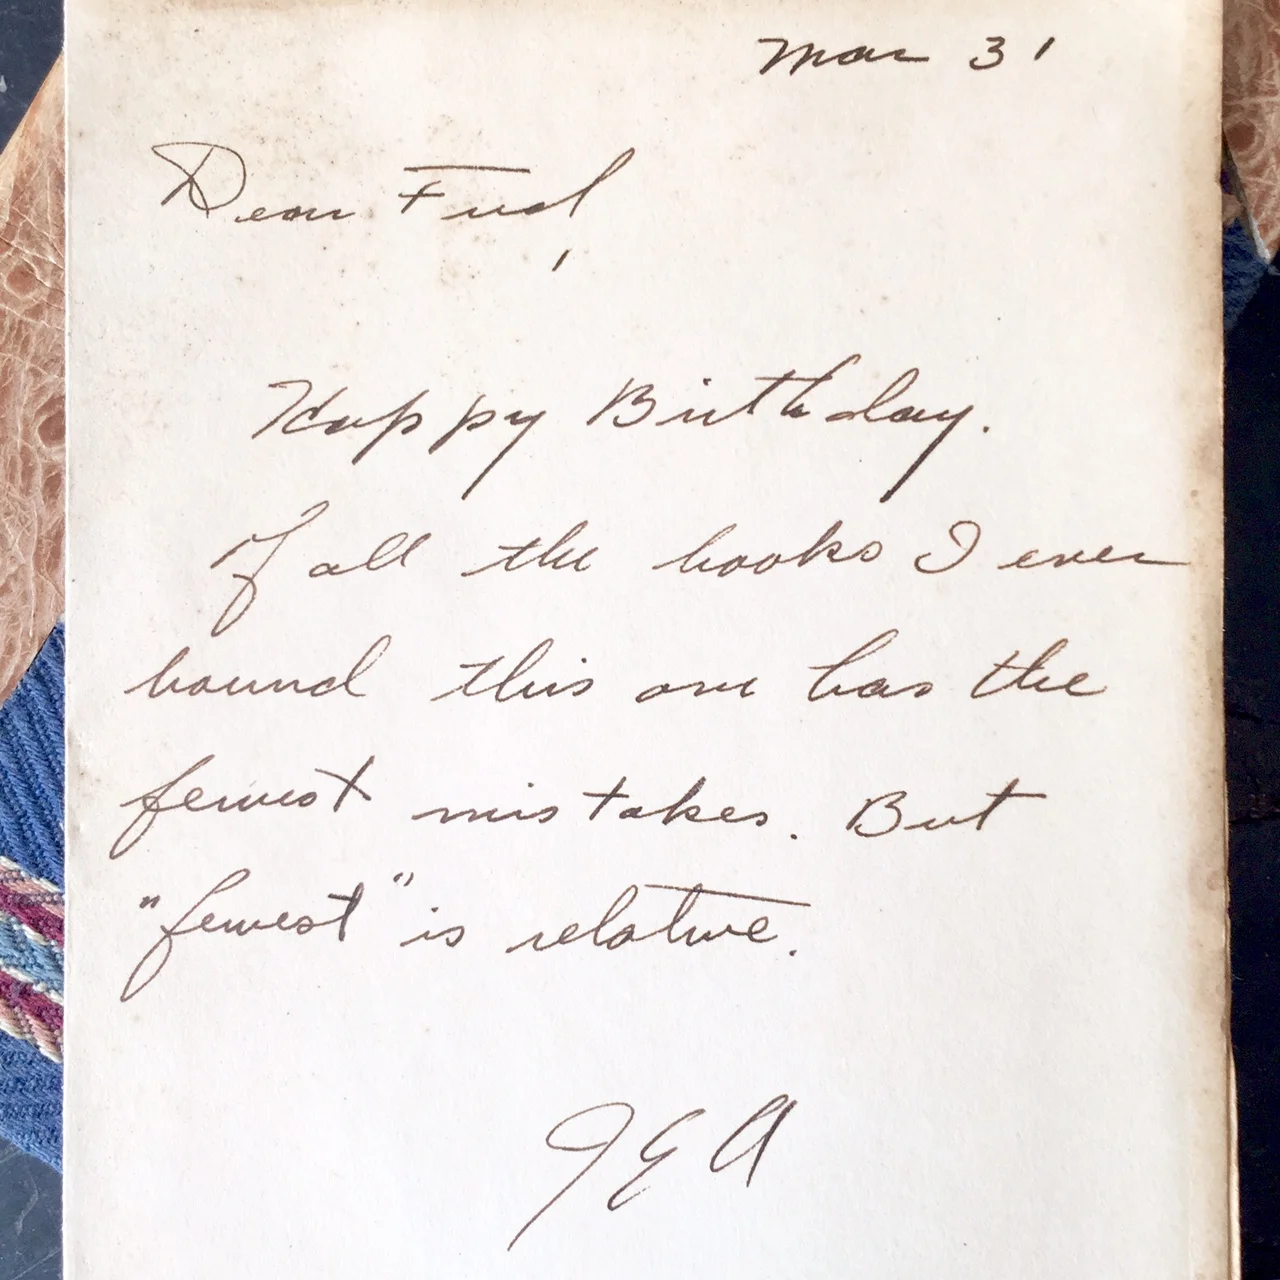 Mar 31
Dear Fred,
Happy Birthday.
Of all the books I ever
bound this one has the
fewest mistakes. But
"fewest" is relative.
JEA